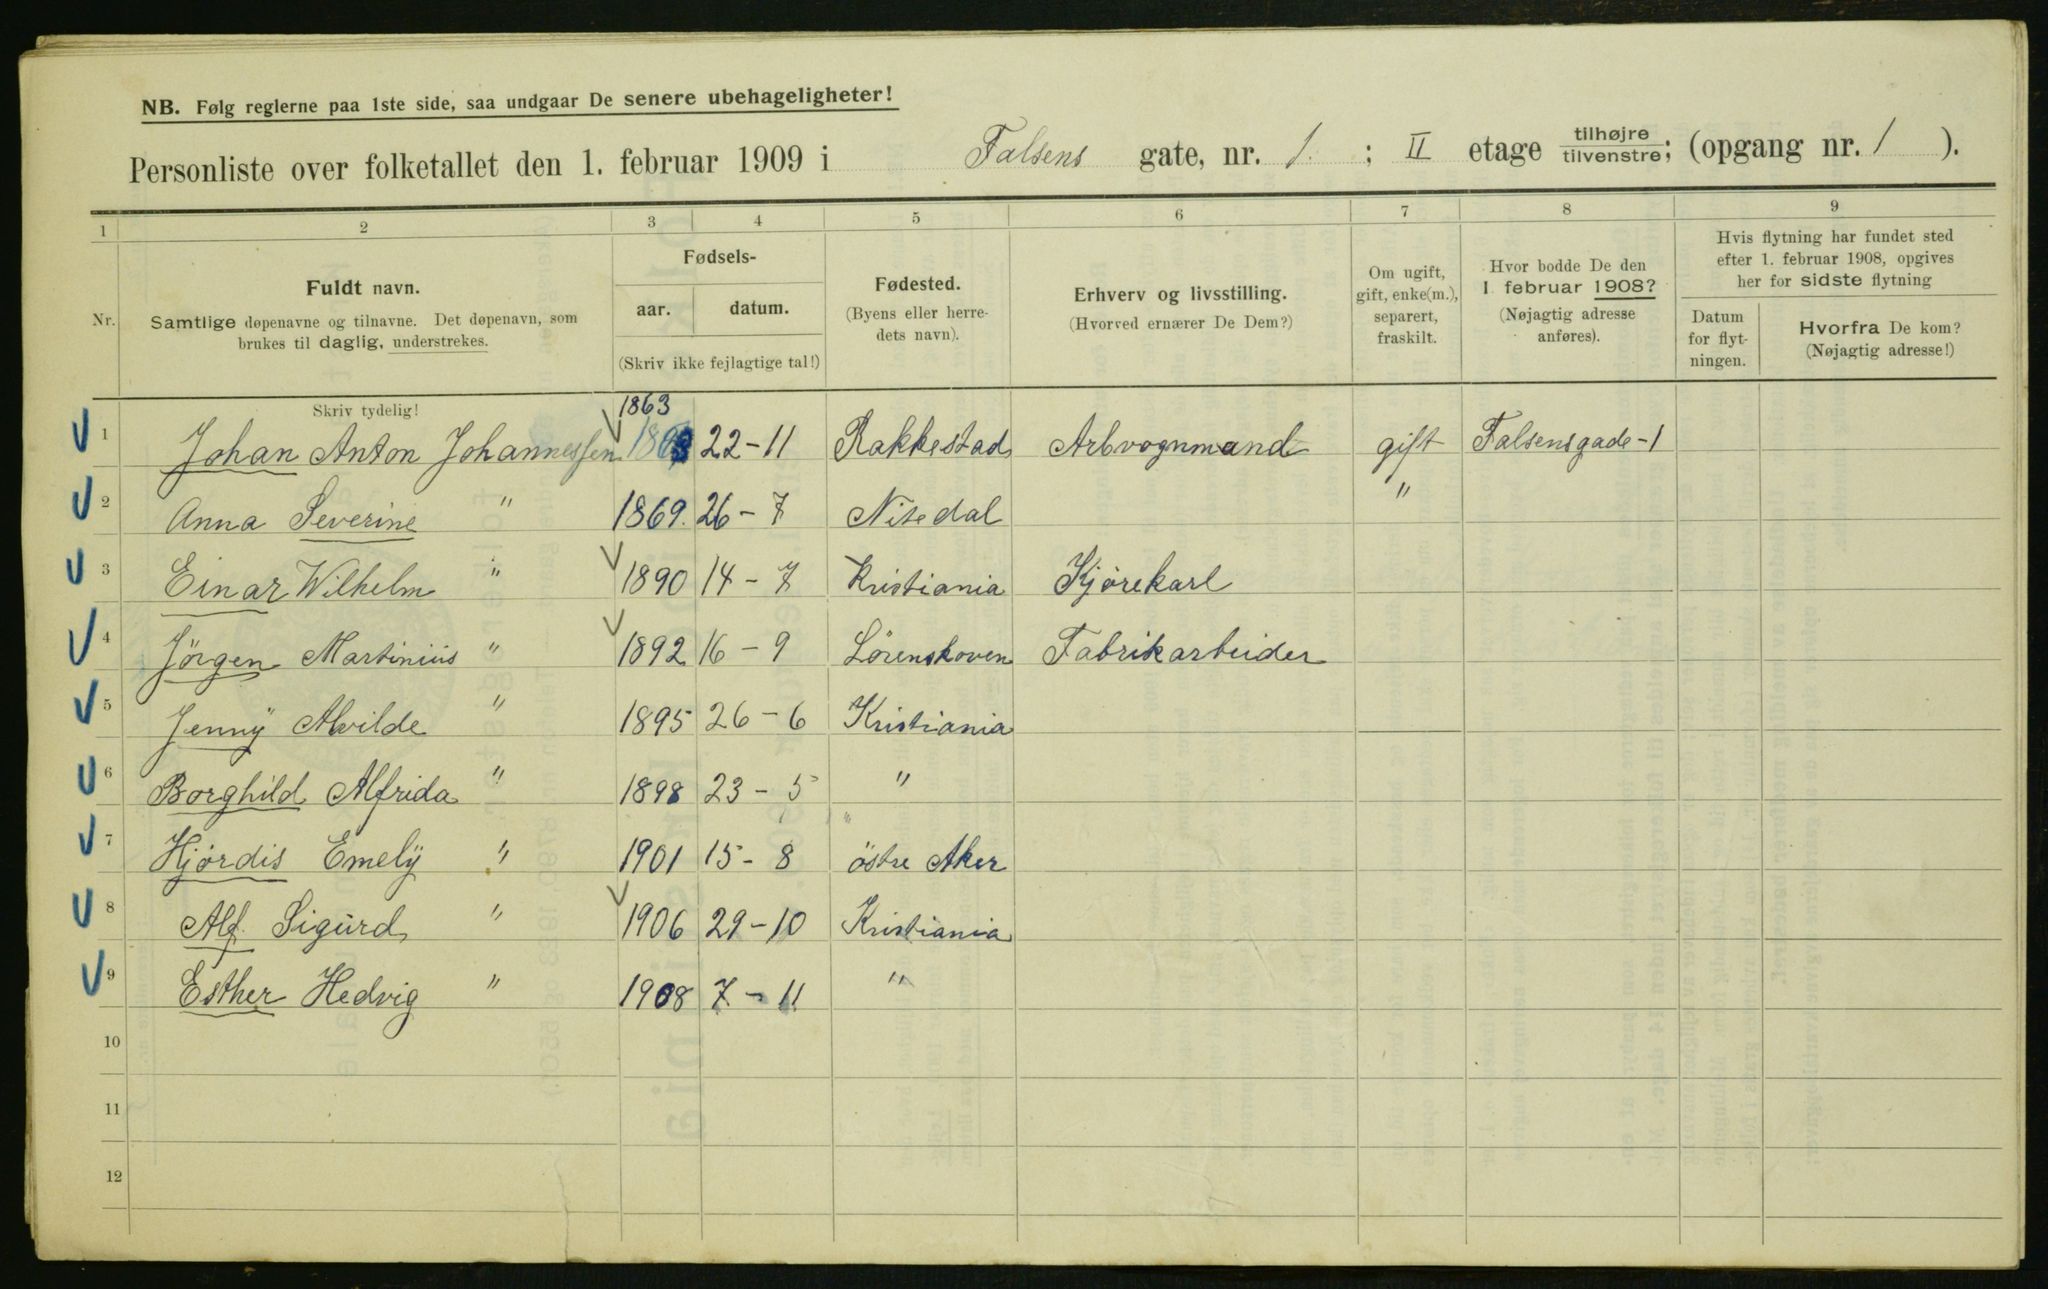 NB. Følg reglerne paa 1ste side, saa undgaar De senere ubehageligheter!
Personliste over folketallet den 1. februar 1909 i Falsens gate, nr. 1. ; II etage tilhøjre / tilvenstre; (opgang nr. 1 ).
1 2 3 4 5 6 7 8 9
Nr.
Fuldt navn.
Samtlige døpenavne og tilnavne. Det døpenavn, som
brukes til daglig, understrekes.
Skriv tydelig!
Fødsels-
aar. datum.
(Skriv ikke fejlagtige tal!)
Fødested.
(Byens eller herre-
dets navn).
Erhverv og livsstilling.
(Hvorved ernærer De Dem?)
Om ugift,
gift, enke(m.),
separert,
fraskilt.
Hvor bodde De den
1 februar 1908?
(Nøjagtig adresse
anføres).
Hvis flytning har fundet sted
efter 1. februar 1908, opgives
her for sidste flytning
Datum
for flyt-
ningen.
Hvorfra De kom?
(Nøjagtig adresse!)
1863
1 Johan Anton Johannessen 1863 22-11 Rakkestad Arbvognmand gift Falsensgade-1
2 Anna Severine " 1869. 26-7 Nitedal "
3 Einar Wilhelm " 1890 14-7 Kristiania Kjørekarl
4 Jörgen Martinius " 1892 16-9 Lørenskoven Fabrikarbeider
5 Jenny Alvilde " 1895 26-6 Kristiania
6 Borghild Alfrida " 1898 23-5 "
7 Hjørdis Emely " 1901 15-8 östre Aker
8 Alf. Sigurd " 1906 29-10 Kristiania
9 Esther Hedvig " 1908 7-11 "
10
11
12